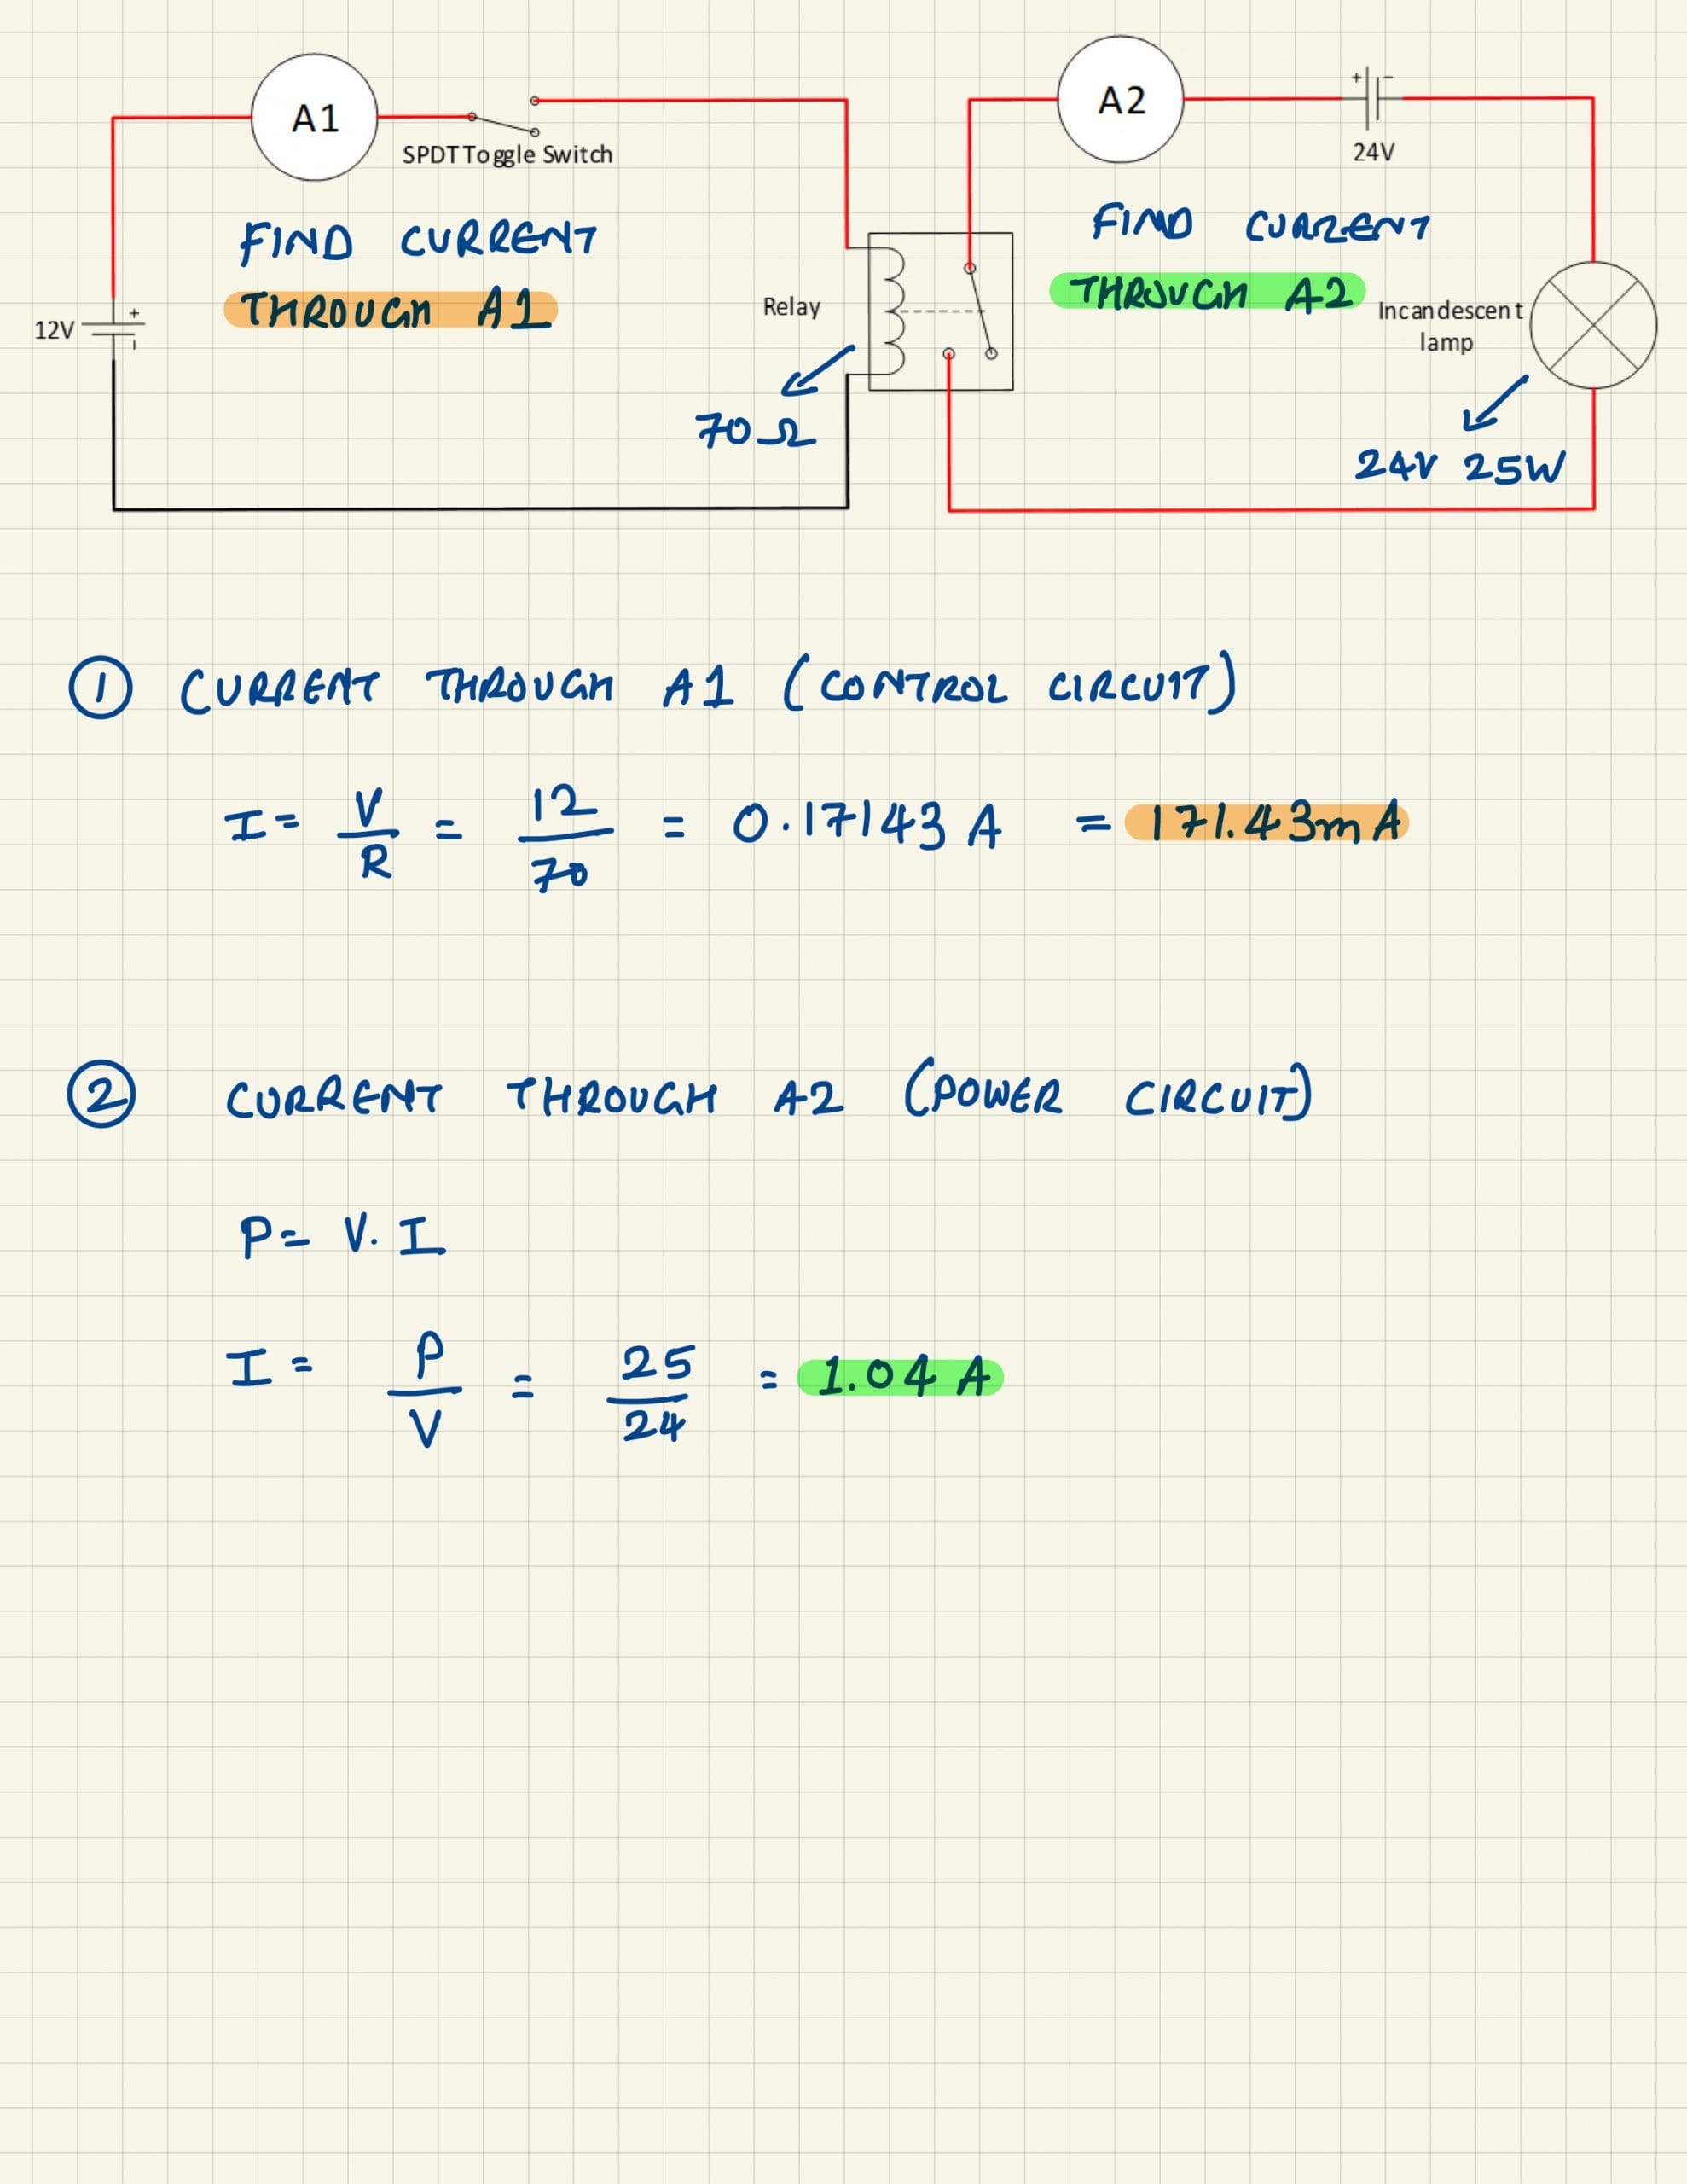 A1
SPDT Toggle Switch
FIND CURRENT
THROUGH A1
12V
+
-
Relay
70Ω
A2
+ -
24V
FIND CURRENT
THROUGH A2
Incandescent
lamp
24V 25W
① CURRENT THROUGH A1 (CONTROL CIRCUIT)
I = V/R = 12/70 = 0.17143 A = 171.43mA
② CURRENT THROUGH A2 (POWER CIRCUIT)
P = V. I
I = P/V = 25/24 = 1.04 A